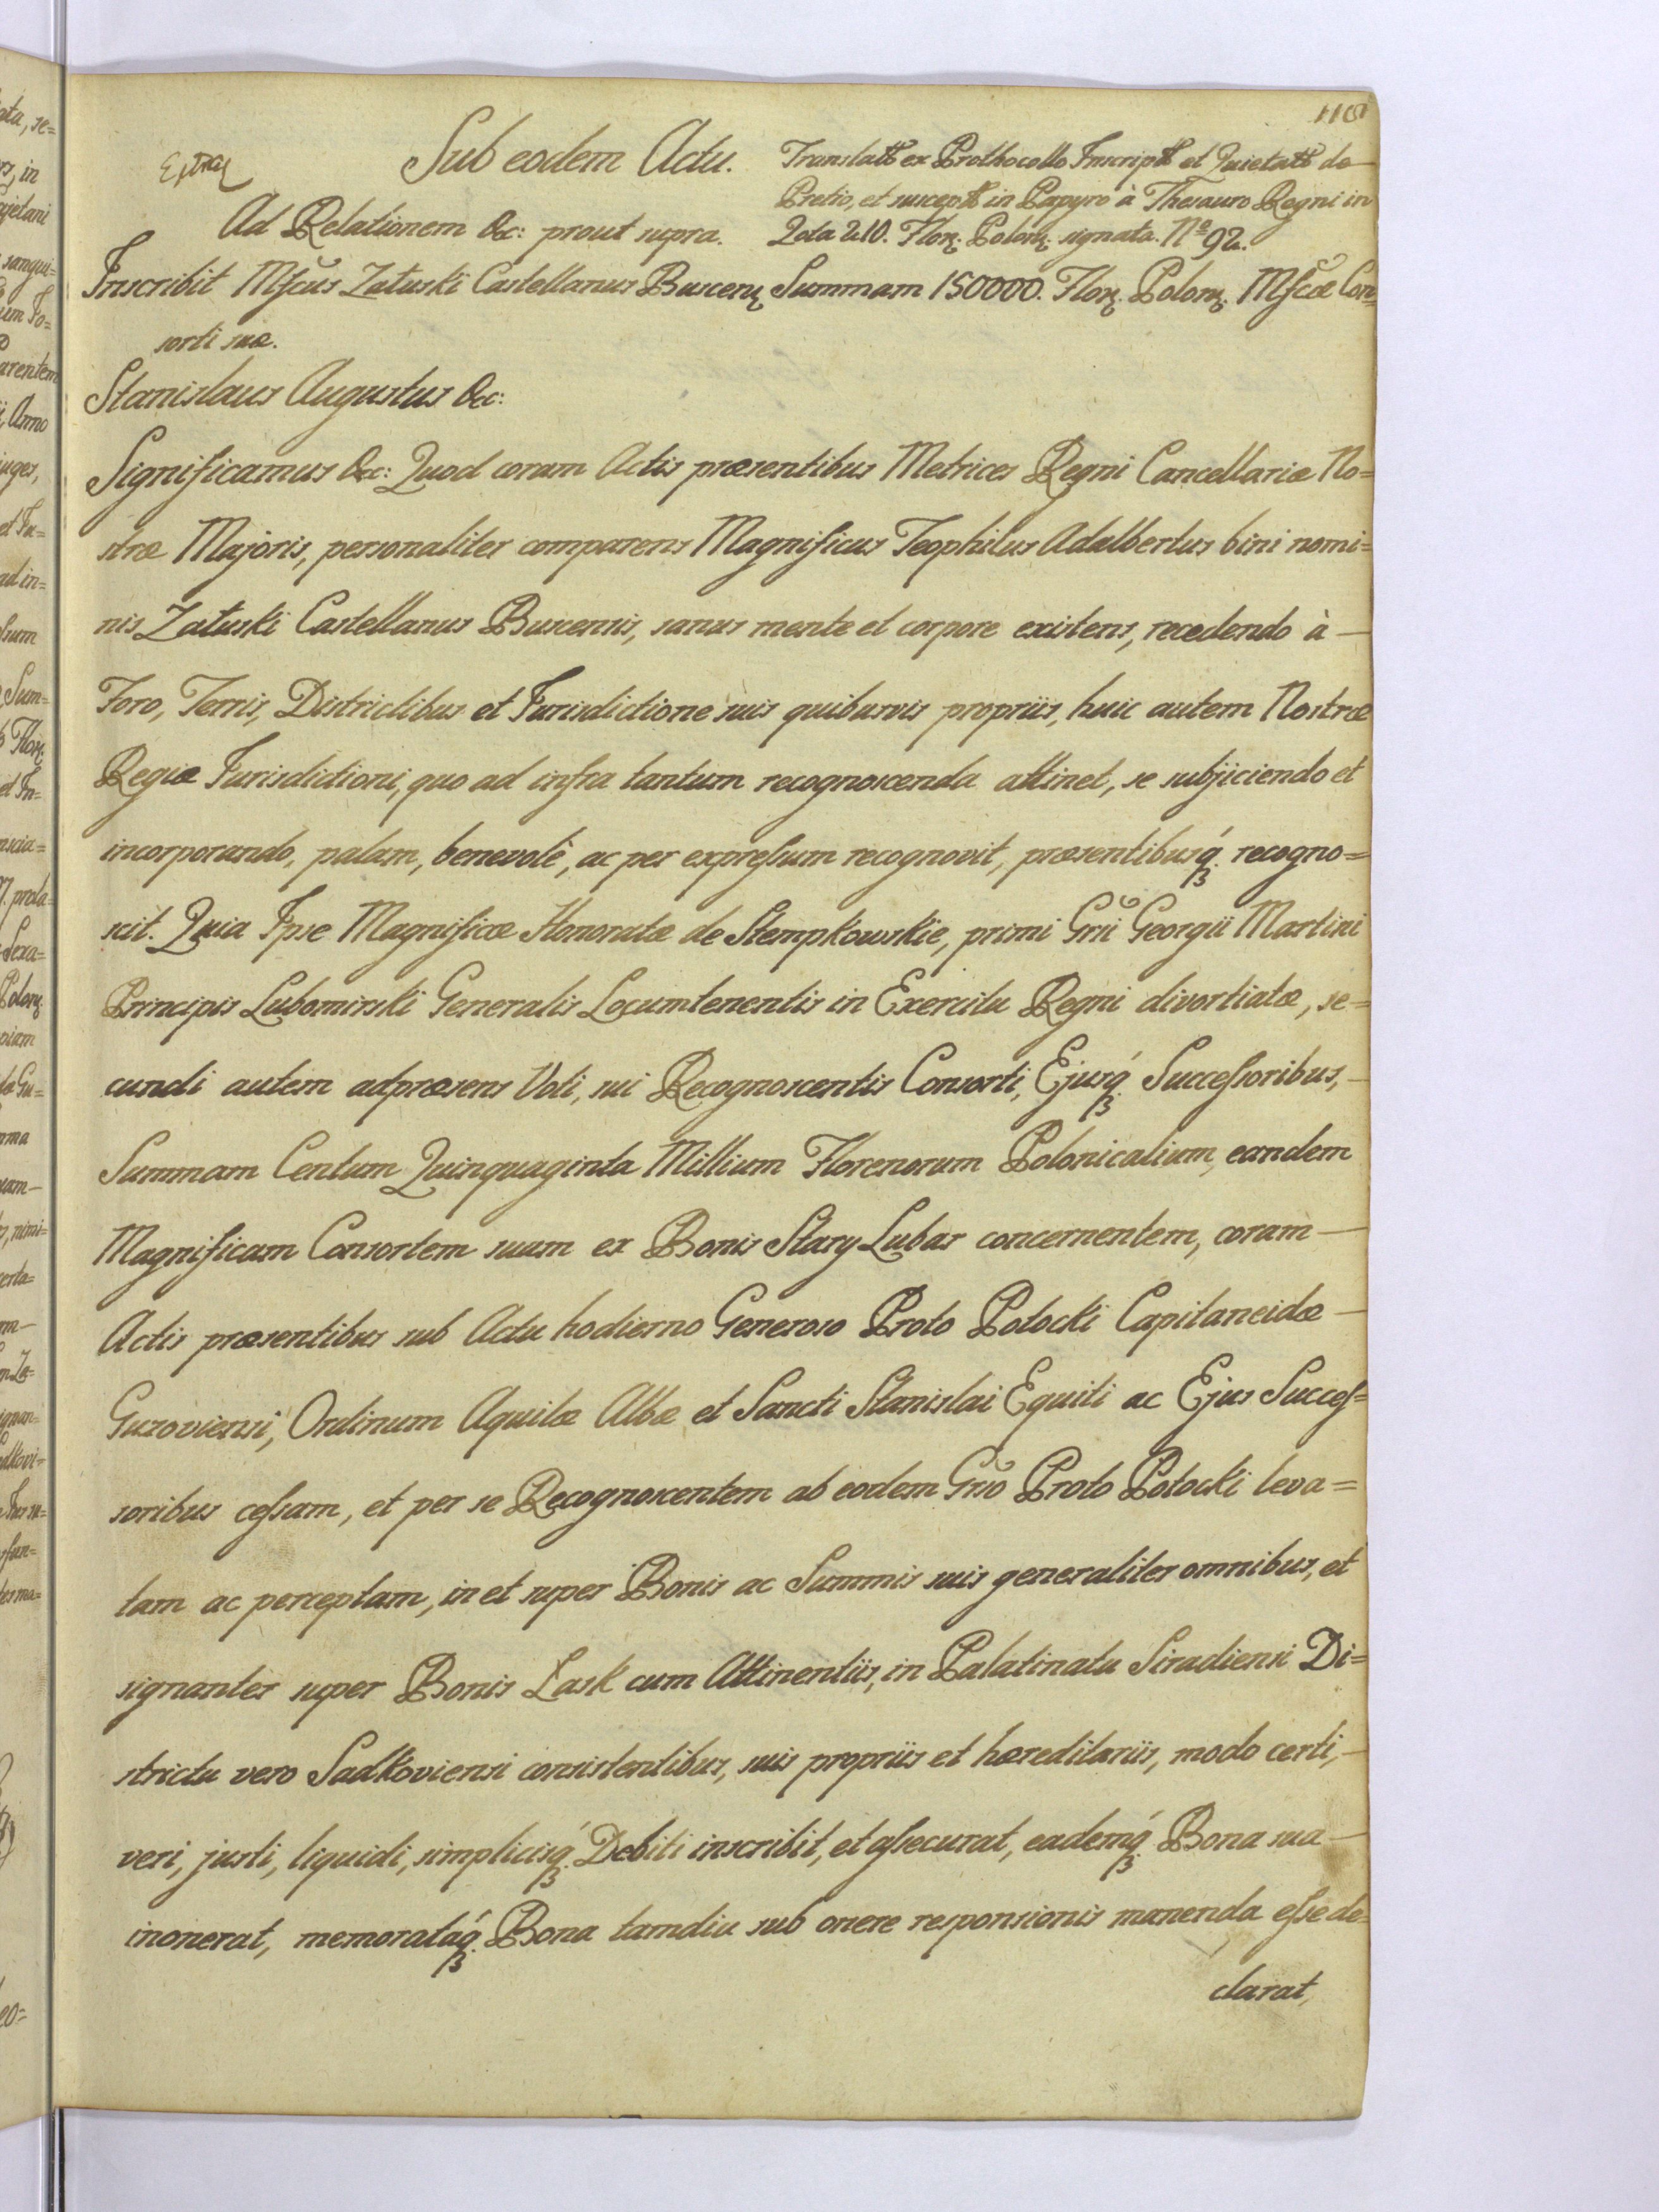 110
Extra
Sub eodem Actu.
Translatū ex Prothocollo Inscriptū et Quietatū de
Pretio, et susceptū in Papyro à Thesauro Regni in
Ad Relationem &c: prout supra.
Qota 210. Flor. Polon. signata. No 92.
Inscribit Mfcus Załuski Castellanus Buscen. Summam 150000. Flor. Polon. Mfcæ Con=
sorti suæ.
Stanislaus Augustus &c:
Significamus &c: Quod coram Actis præsentibus Metrices Regni Cancellariæ No=
stræ Majoris, personaliter comparens Magnificus Teophilus Adalbertus bini nomi=
nis Załuski Castellanus Buscensis, sanus mente et corpore existens, recedendo à —
Foro, Terris, Districtibus et Jurisdictione suis quibusvis propriis, huic autem Nostræ
Regiæ Jurisdictioni, quo ad infra tantum recognoscenda attinet, se subjiciendo et
incorporando, palam, benevolè, ac per expressum recognovit, præsentibusq́. recogno=
scit. Quia Ipse Magnificæ Honoratæ de Stempkowskie, primi Grsi Georgii Martini
Principis Lubomirski Generalis Locumtenentis in Exercitu Regni divortiatæ, se=
cundi autem adpræsens Voti, sui Recognoscentis Consorti, Ejusq́. Successoribus, —
Summam Centum Quinquaginta Millium Florenorum Polonicalium, eandem
Magnificam Consortem suam ex Bonis Stary Lubar concernentem, coram —
Actis præsentibus sub Actu hodierno Generoso Proto Potocki Capitaneidæ —
Guzoviensi, Ordinum Aquilæ Albæ et Sancti Stanislai Equiti ac Ejus Succes=
soribus cessam, et per se Recognoscentem ab eodem Grso Proto Potocki leva=
tam ac perceptam, in et super Bonis ac Summis suis generaliter omnibus, et
signanter super Bonis Łask cum Attinentiis, in Palatinatu Siradiensi Di=
strictu vero Sadkoviensi consistentibus, suis propriis et hæreditariis, modo certi, —
veri, justi, liquidi, simplicisq́. Debiti inscribit, et assecurat, eademq́. Bona sua —
inonerat, memoratáq́. Bona tamdiu sub onere responsionis manenda esse de=
clarat,